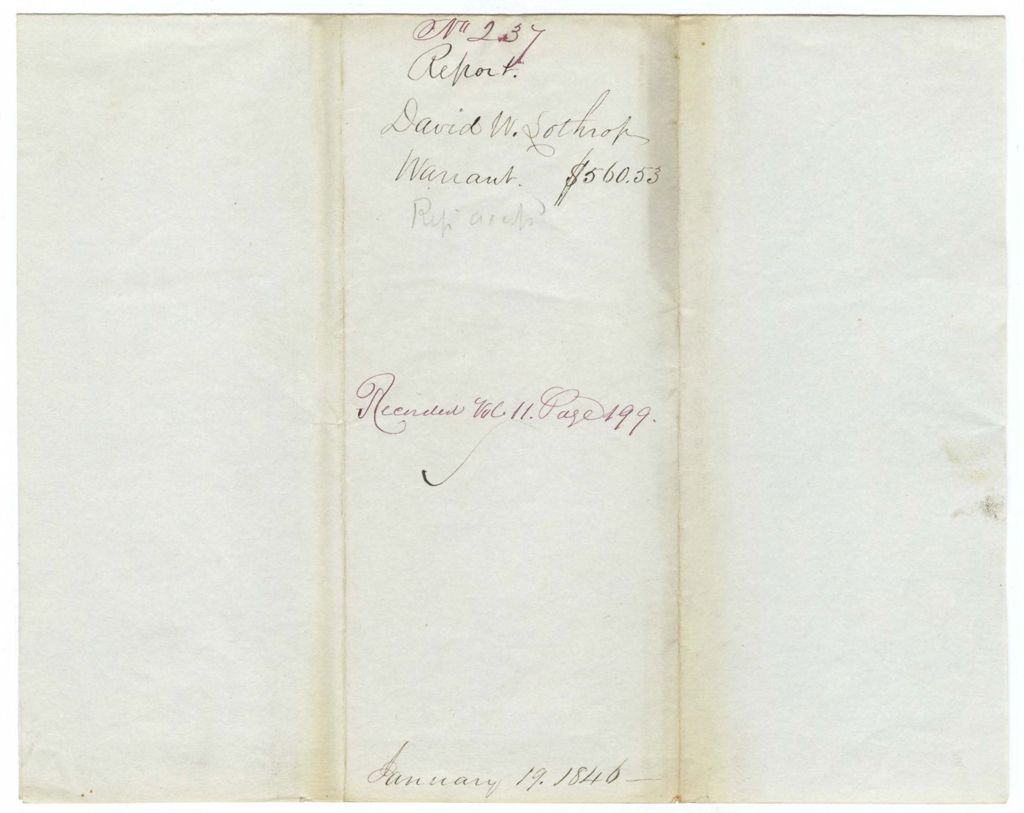 No 237
Report.
David W. Lothrop
Warrant. $560.53
Rep. accep
Recorded Vol 11. Page 199.
January 19. 1846